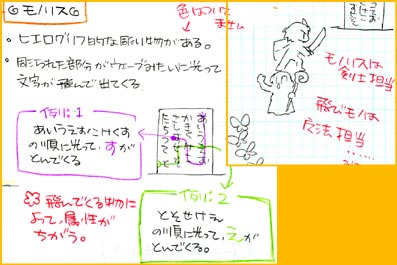 ◎モノリス◎
色はついて
ません
・ヒエログリフ的な彫り物がある。
・彫られた部分がウェーブみたいに光って
文字が飛んで出てくる
例:1
あいうえおこけくす
の順に光って、すが
とんでくる
あいうえお
かきくけこ
さしすせそ
たちつてと
飛んでくる物に
よって、属性が
ちがう。
例:2
とそせけえ
の順に光って、えが
とんでくる。
モノリスは
剣士担当
飛びモノは
魔法担当